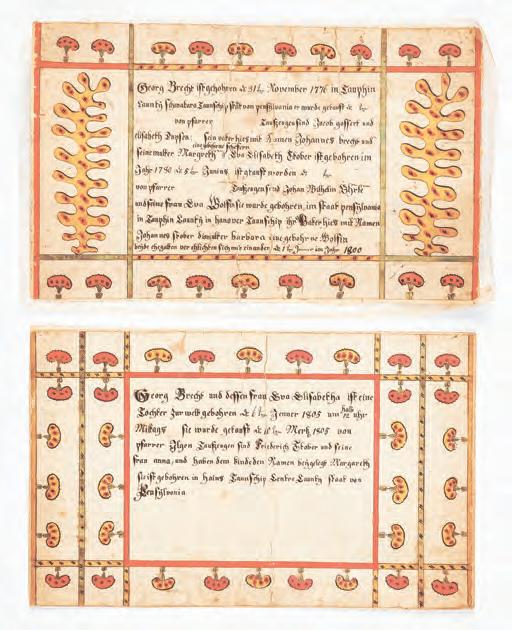 Georg Brecht ist gebohren de 31 November 1776 in Tauphin
County state von pensilvania er wurde getauft de
von pfarrer Taufzeugen sind Jacob gossert und
elisabeth sein vater hies mit Namen Johannes brecht und
eine gebohrne
seine mutter Margreth Eva Elisabeth Stober ist gebohren im
Jahr 1780 de 8 Junius ist getauft worden de
von pfarrer Taufzeugen sind Johan Wilhelm
und seine frau Eva wurde gebohren im staat pensylvania
in Tauphin County in hanover Taunschip ihr Vater hies mit Namen
Johannes stober die mutter barbara eine gebohrne Wolfin
beyde ehegatten verehlichten sich mit einander de 1 Jenner im Jahr 1800
Georg Brecht und dessen frau Eva Elisabetha ist eine
Tochter zur welt gebohren de 6 Jenner 1805 um halb 12 uhr
Mittags sie wurde getauft de 10 Mertz 1805 von
pfarrer Ilgen Taufzeugen sind Friederich Stober und seine
frau anna, und haben dem kinde den Namen beygelegt Margareth
sie ist gebohren in hains Taunschip Centre County staat von
Pensylvania